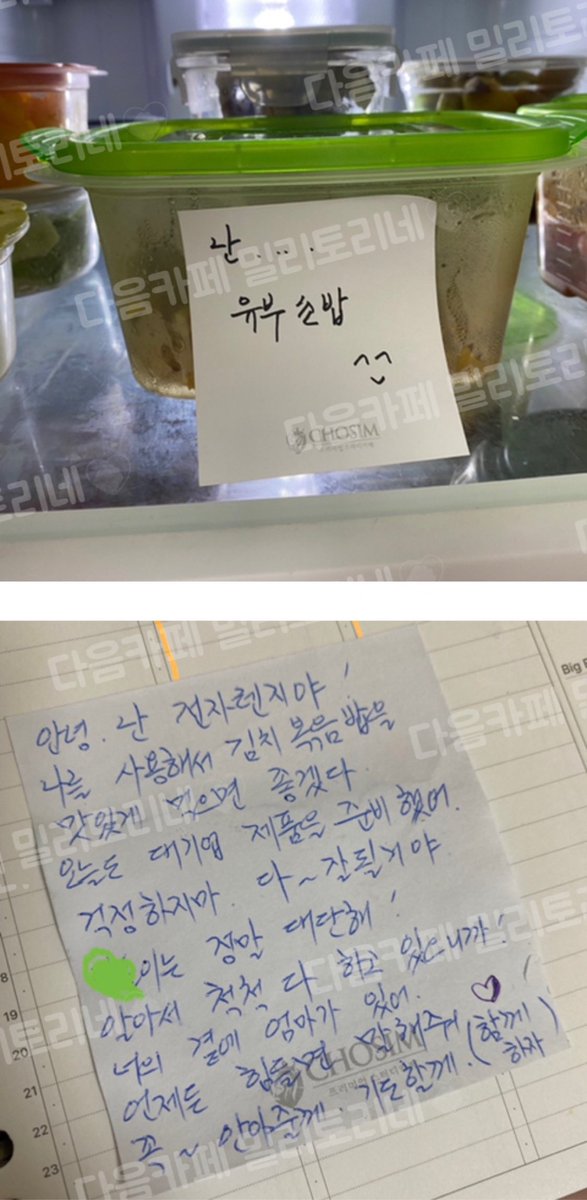 난....
유부초밥
^^
CHOSIM
안녕. 난 전자렌지야!
나를 사용해서 김치볶음밥을
맛있게 먹으면 좋겠다.
오늘도 대기업 제품을 준비했어.
걱정하지마. 다~잘될거야
이는 정말 대단해!
알아서 척척 다 하고 있으니까!
너의 곁에 엄마가 있어. ♡
언제든 힘들면 말해주셔 (함께
꼭~ 안아줄께. 기도할께. 하자)
CHOSIM
Big
8
19
20
21
22
23
다음카페 밀리토리네